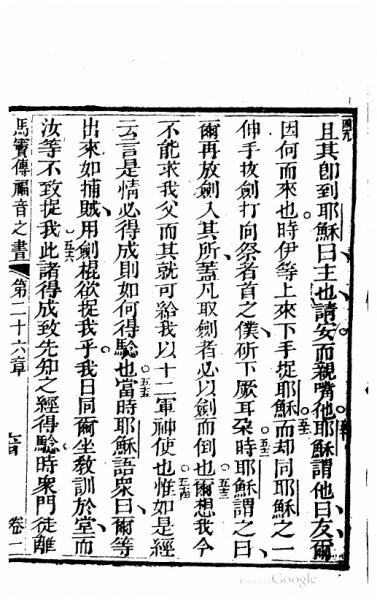 四九
且其卽到耶穌曰主也請安而親嘴他耶穌謂他曰友爾
因何而來也時伊等上來下手捉耶穌而却同耶穌之一
伸手拔劍打向祭者首之僕斫下厥耳朶時耶穌謂之曰
爾再放劍入其所蓋凡取劍者必以劍而倒也爾想我今
不能求我父而其就可給我以十二軍神使也惟如是經
云言是情必得成則如何得騐也當時耶穌語衆曰爾等
出來如捕賊用劍棍欲捉我乎我日同爾坐敎訓於堂而
汝等不致捉我此諸得成致先知之經得騐時衆門徒離
馬竇傳福音之書 第二十六章 卷一
五十
五一
五二
五三
五四
五五
五六
Google